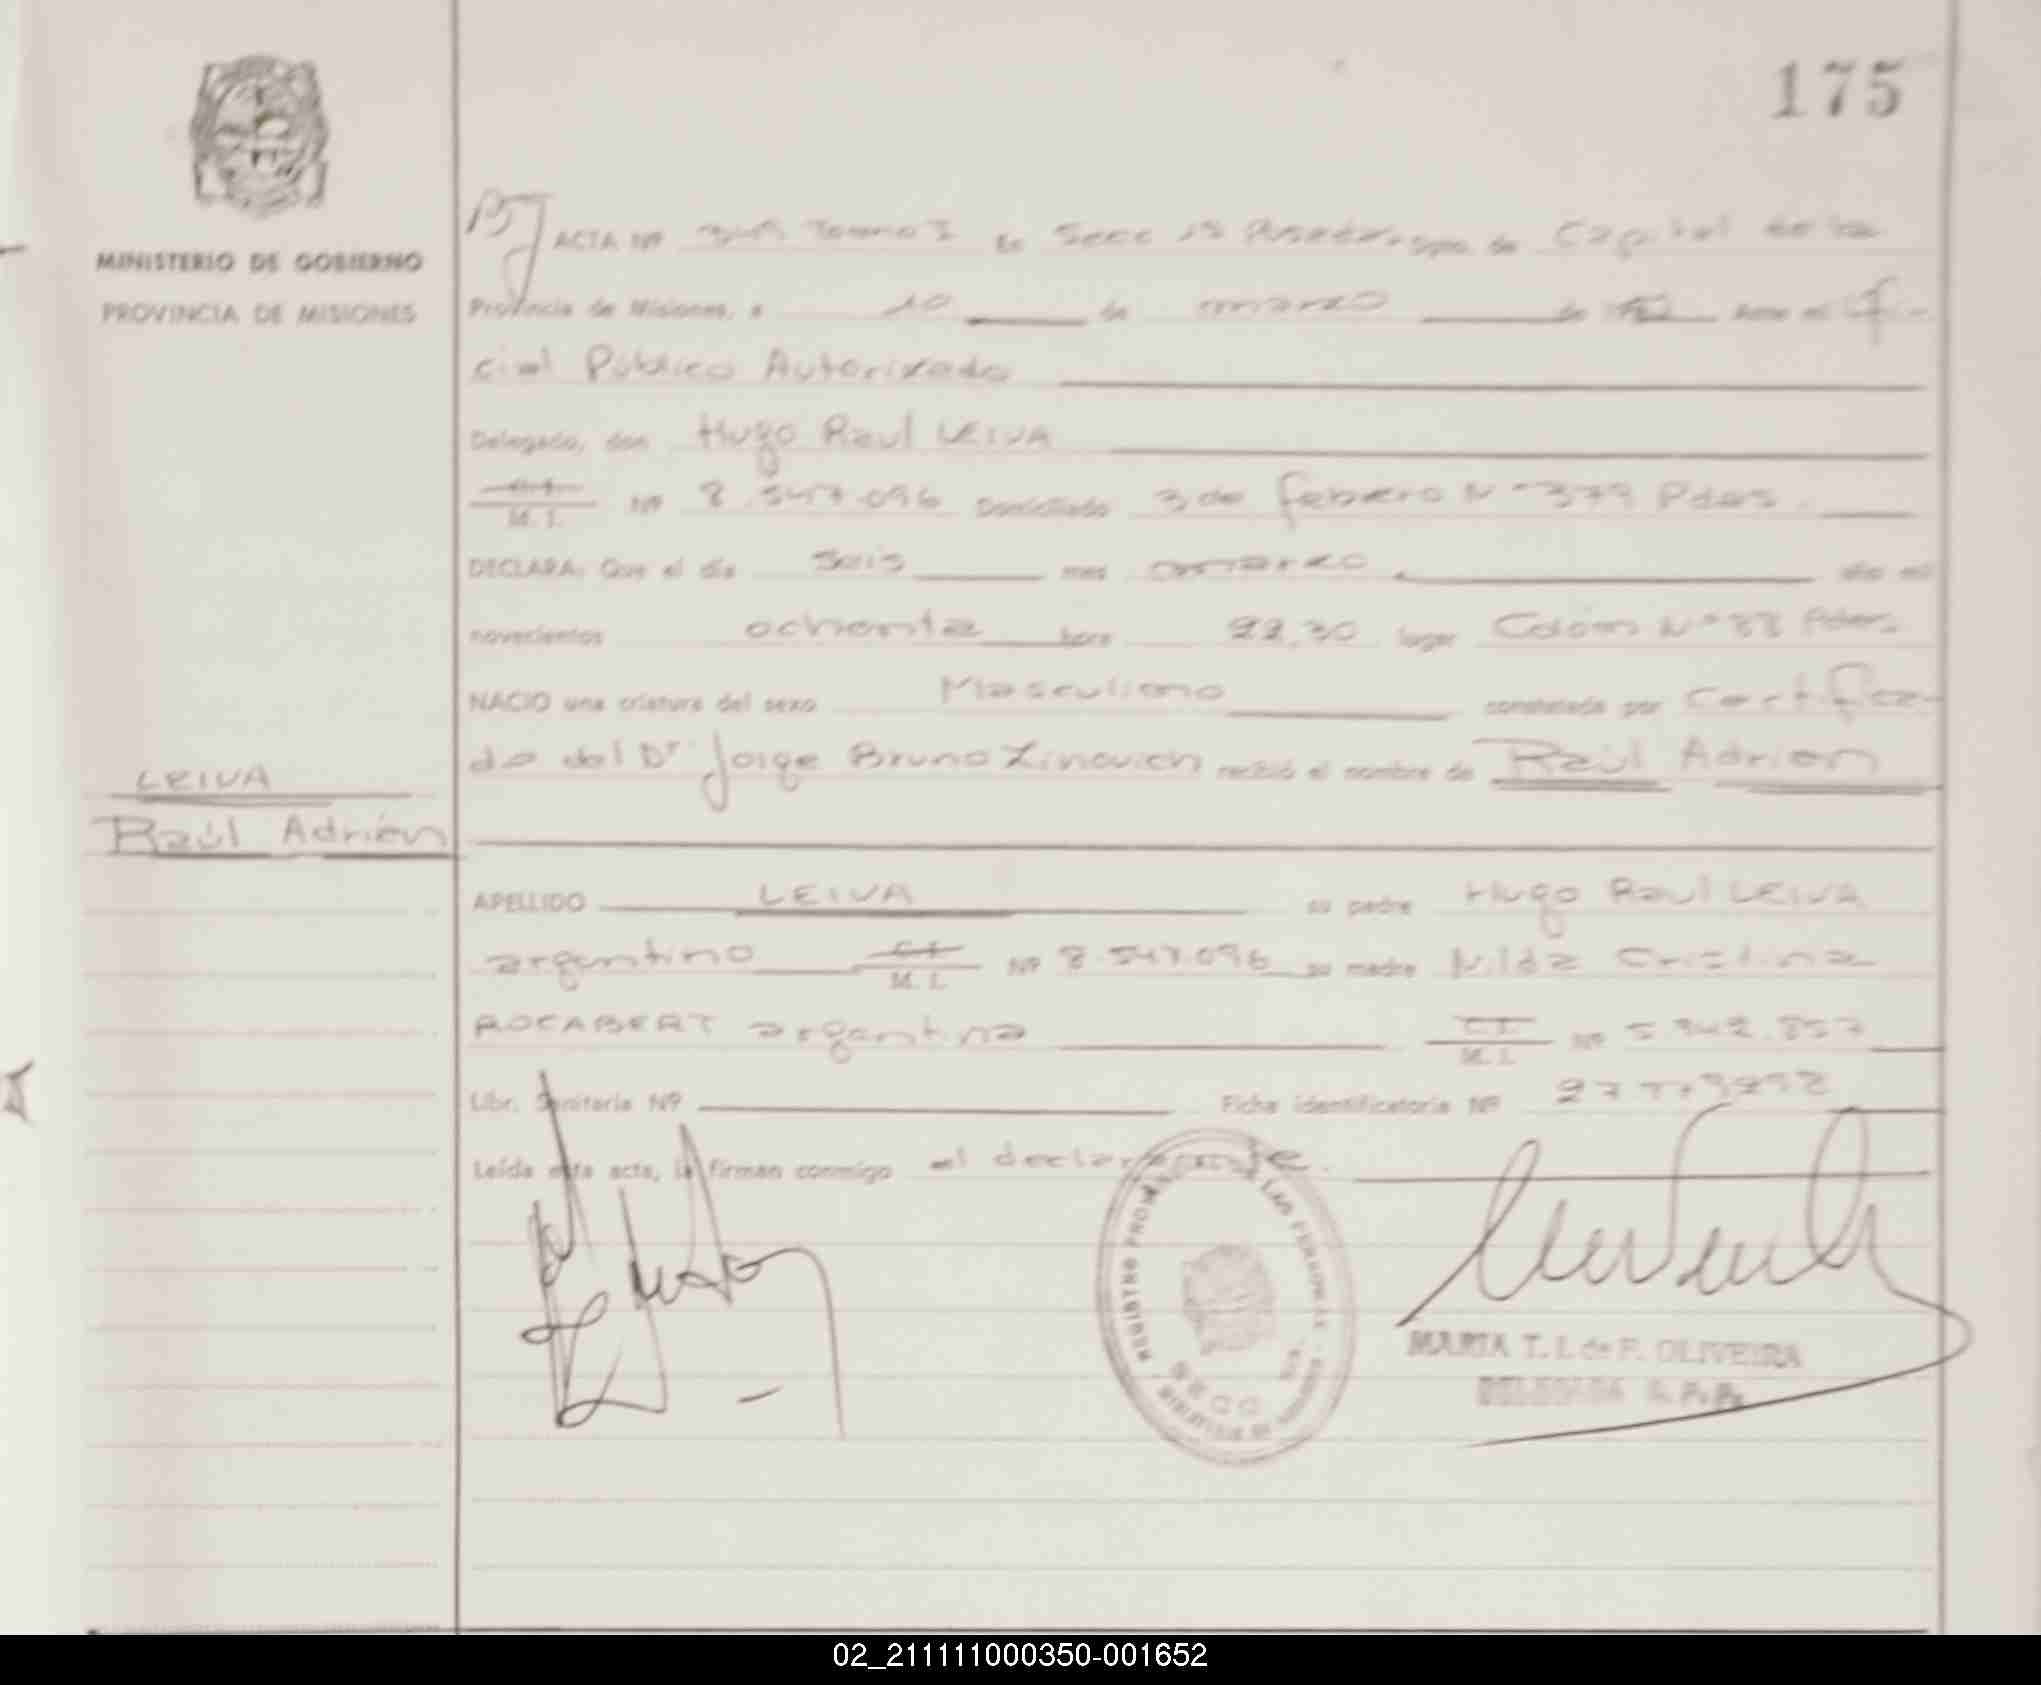 175
MINISTERIO DE GOBIERNO
PROVINCIA DE MISIONES
ACTA Nº Tomo I En Secc 1ª Posadas, Dpto. de Capital de la
Provincia de Misiones, a 10 de marzo de Ante mí Ofi-
cial Público Autorizado
Delegado, don Hugo Raul LEIVA
M. I. Nº 8.547.096 Domiciliado 3 de febrero Nº 379 Pdas.
DECLARA: Que el día Seis mes marzo de mil
novecientos ochenta hora 22,30 lugar Colón Nº Pdas.
NACIO una criatura del sexo Masculino constatada por Certifica-
do del Dr Jorge Bruno Zinovich recibió el nombre de Raúl Adrián
LEIVA
Raúl Adrián
APELLIDO LEIVA su padre Hugo Raul LEIVA
argentino C. I. M. I. Nº 8.547.096 su madre Nilda Cristina
ROCABERT argentina C. I. M. I. Nº 5.942.857
Libr. Sanitaria Nº Ficha identificatoria Nº
Leída esta acta, la firman conmigo el declarante.
REGISTRO PROVINCIAL DE LAS PERSONAS
MARIA T. I. de F. OLIVEIRA
DELEGADA R. P. P.
02_211111000350-001652